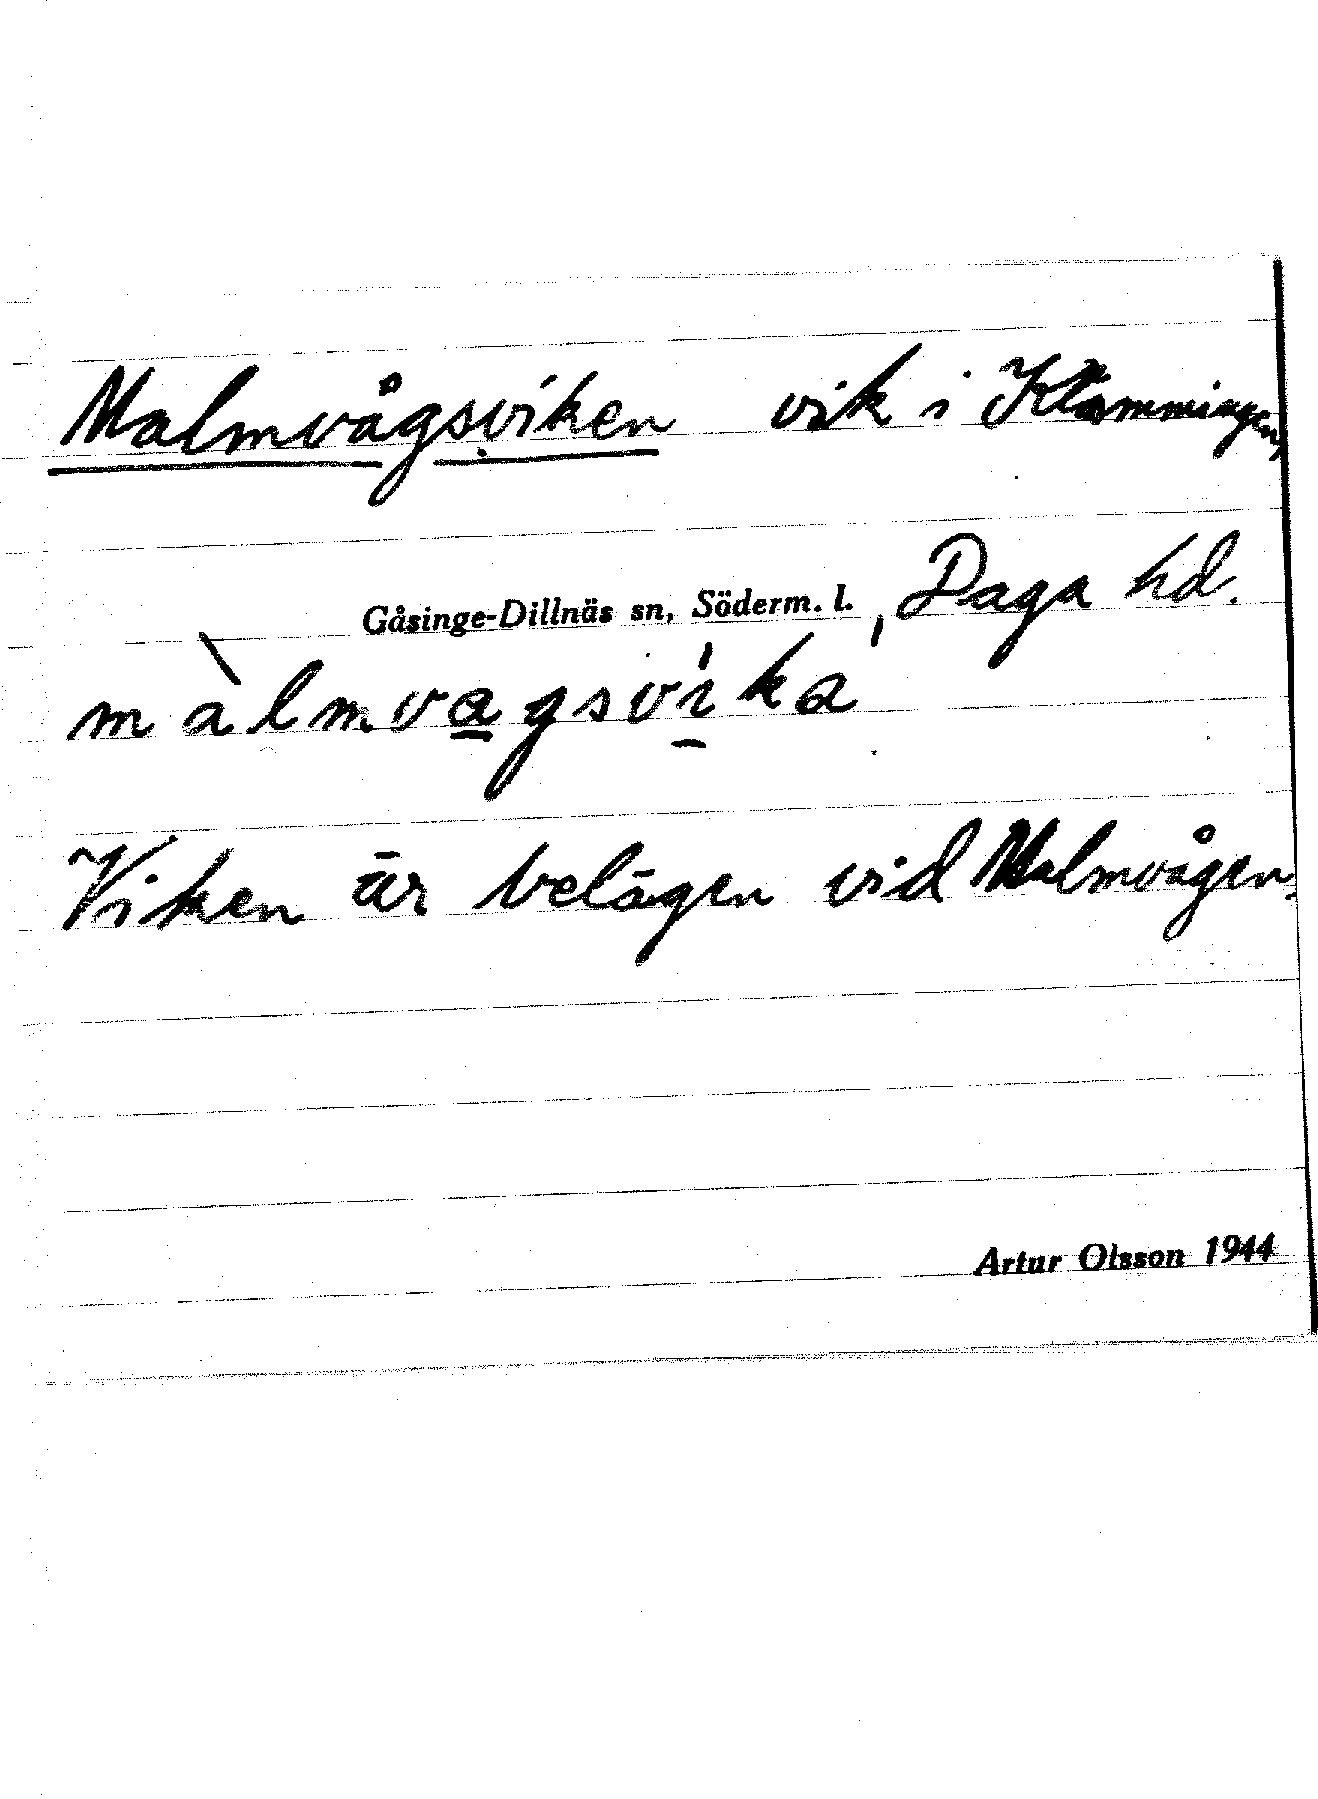 Malmvågsviken vik i Klämmingen,
Gåsinge-Dillnäs sn, Söderm. l., Daga hd.
màlmva̲gsví̲ka
Viken är belägen vid Malmvågen.
Artur Olsson 1944